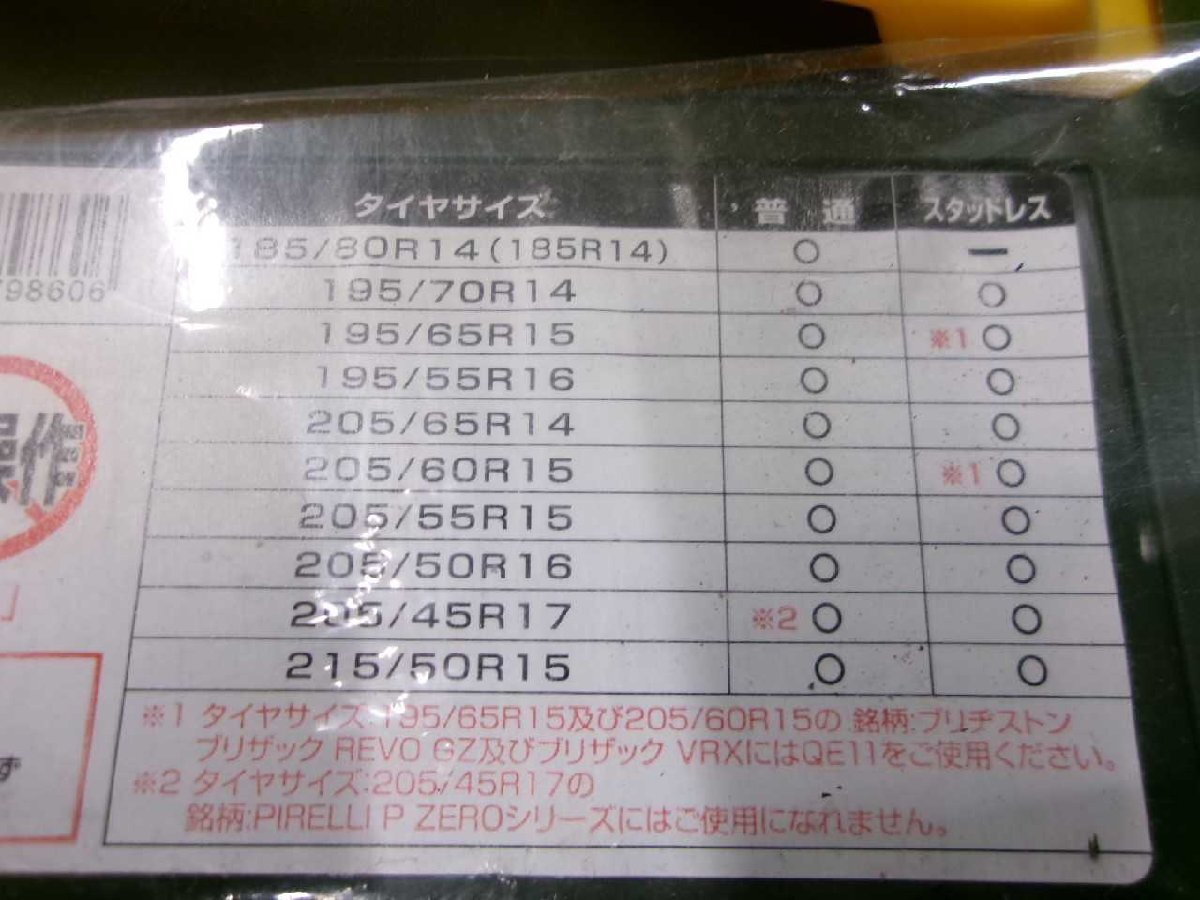 タイヤサイズ 普通 スタッドレス
185/80R14(185R14) ○ ー
195/70R14 ○ ○
195/65R15 ○ ※1 ○
195/55R16 ○ ○
205/65R14 ○ ○
205/60R15 ○ ※1 ○
205/55R15 ○ ○
205/50R16 ○ ○
205/45R17 ※2 ○ ○
215/50R15 ○ ○
※1 タイヤサイズ:195/65R15及び205/60R15の 銘柄:ブリヂストン
ブリザック REVO GZ及びブリザック VRXにはQE11をご使用ください。
※2 タイヤサイズ:205/45R17の
銘柄:PIRELLI P ZEROシリーズにはご使用になれません。
798606
操作
」
す